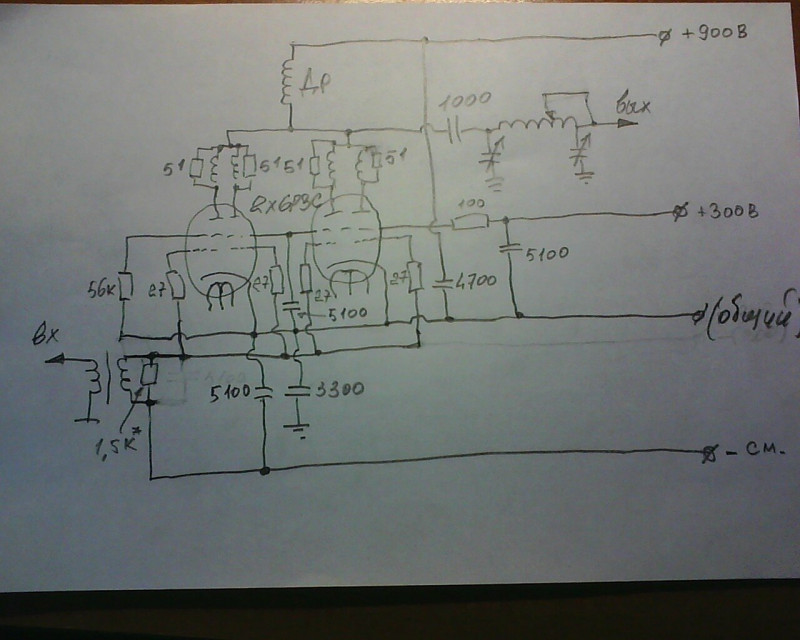 +900В
Др
1000
вых
51
51
51
51
100
+300В
5100
56к
27
27
27
27
5100
4700
(общий)
вх
5100
3300
1,5к*
- см.